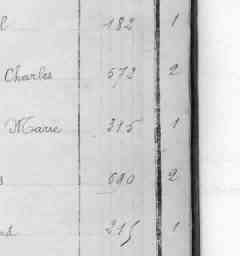 l 182 1
Charles 572 2
Marie 315 1
s 690 2
nd 215 1